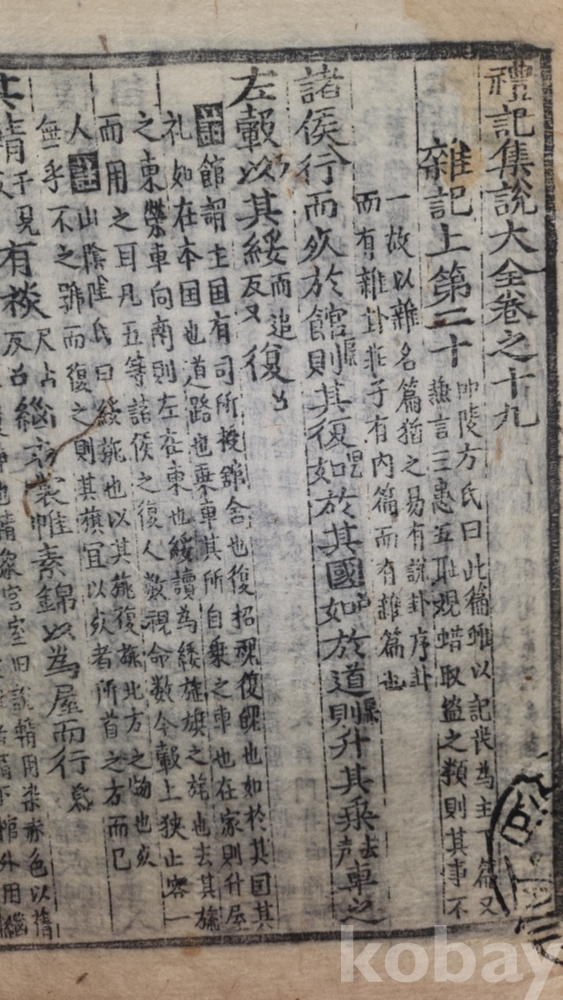 禮記集說大全卷之十九
雜記上第二十
陵方氏曰此篇雖以記丧為主下篇又
兼言三患五耻观蜡取盜之類則其事不
一故以雜名篇猶之易有說卦序卦
而有雜卦莊子有內篇而有雜篇也
諸侯行而死於館則其復如於其國如於道則升其乘声去車之
左轂以其綏而追反又復
註館謂主国有司所授館舍也復招魂復魄也如於其国其
礼如在本国也道路也乘車其所自乘之車也在家則升屋
之東榮車向南則左在東也綏讀為緌旌旗之旄也去其旒
而用之耳凡五等諸侯之復人數視命數今轂上狹止容一
人註山陰陸氏曰緌旄也以其旄復旐北方之物也死
無乎不之號而復之則其旗宜以死者所首之方而已
其輤千見反有裧尺占反緇布裳帷素錦以為屋而行
kobay